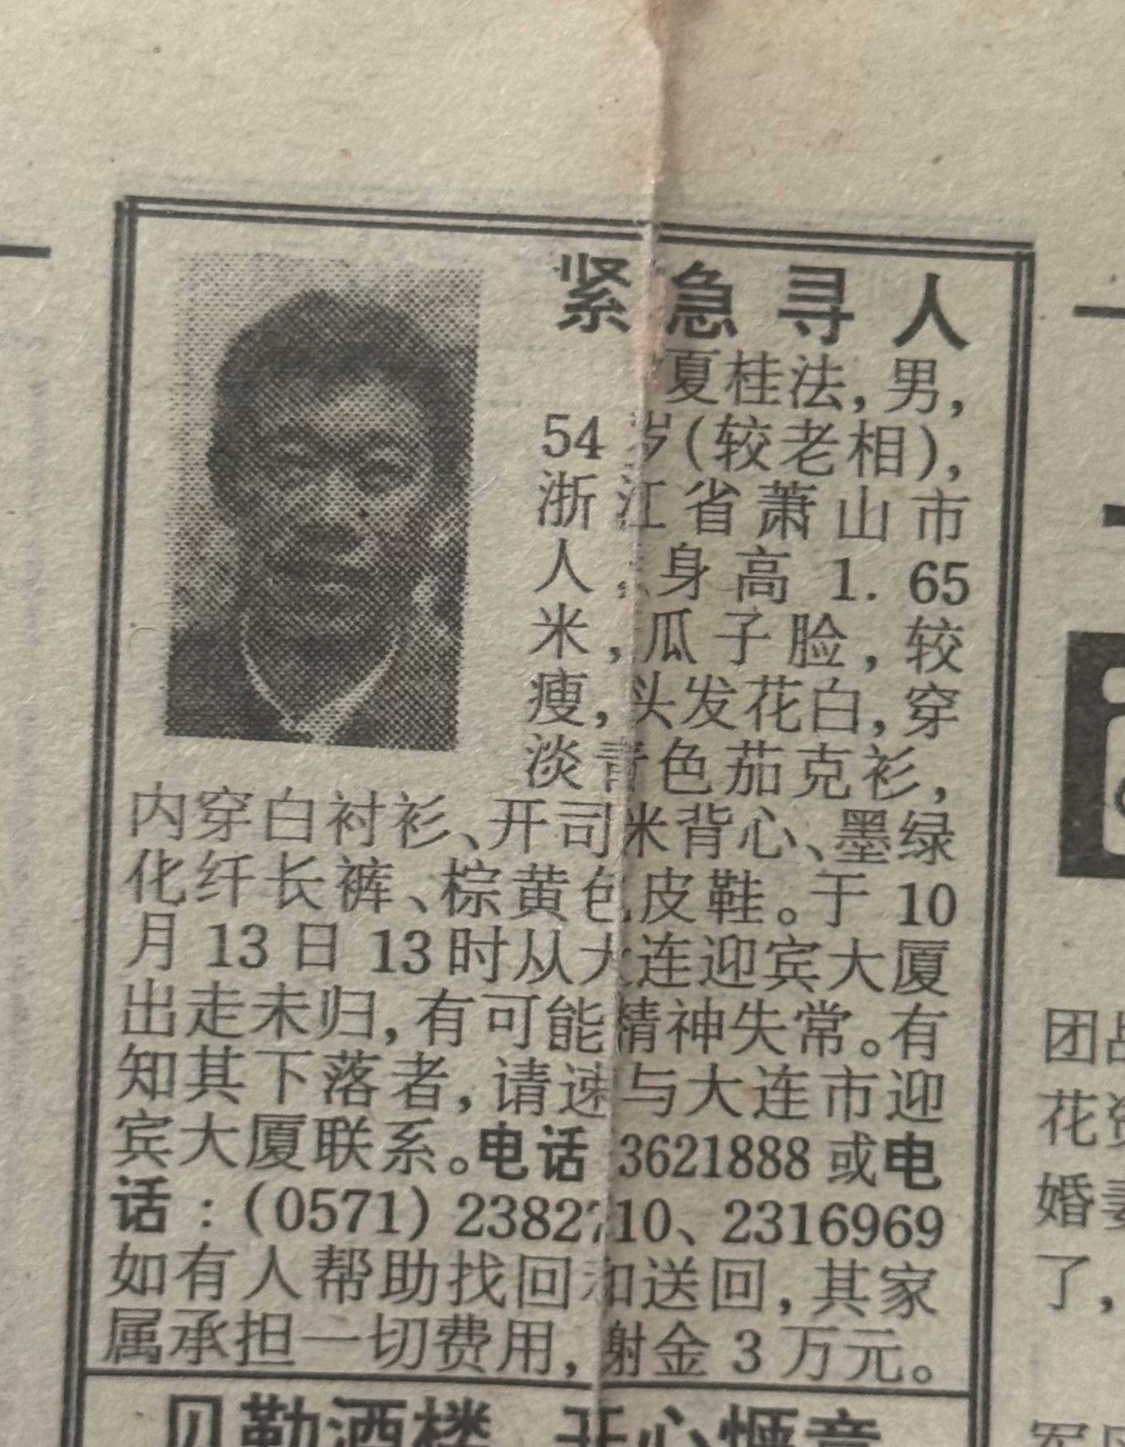 紧急寻人
夏桂法,男,
54岁(较老相),
浙江省萧山市
人,身高1.65
米,瓜子脸,较
瘦,头发花白,穿
淡青色茄克衫,
内穿白衬衫、开司米背心、墨绿
化纤长裤、棕黄色皮鞋。于10
月13日13时从大连迎宾大厦
出走未归,有可能精神失常。有
知其下落者,请速与大连市迎
宾大厦联系。电话3621888或电
话:(0571)2382710、2316969
如有人帮助找回和送回,其家
属承担一切费用,谢金3万元。
贝勒酒楼 开心惬意
团
花
婚妻
了,